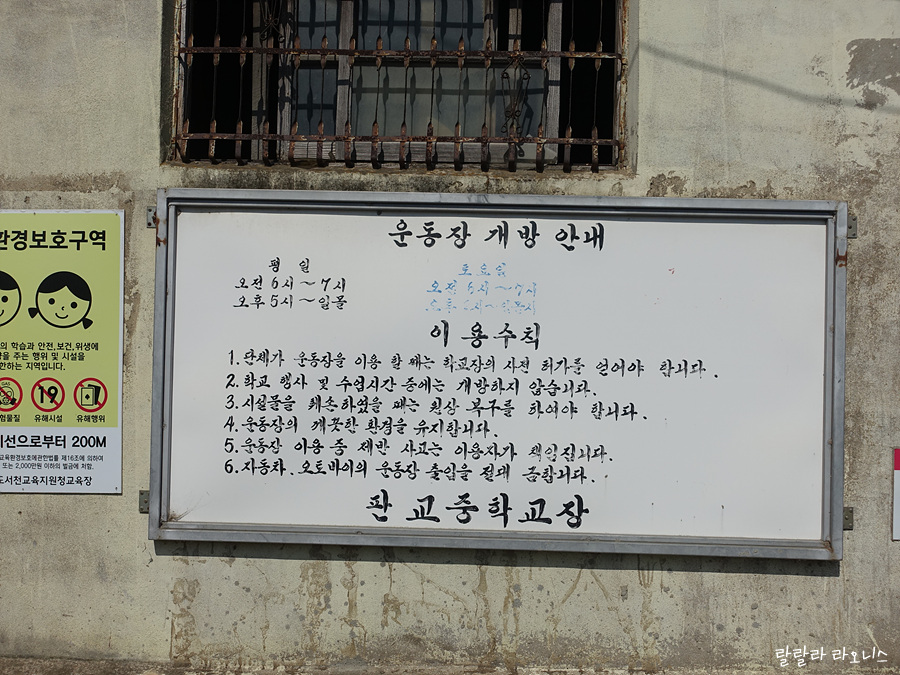 환경보호구역
의 학습과 안전,보건,위생에
을 주는 행위 및 시설을
한하는 지역입니다.
GAS
19
험물질 유해시설 유해행위
계선으로부터 200M
교육환경보호에관한법률 제16조에 의하여
또는 2,000만원 이하의 벌금에 처함.
도서천교육지원청교육장
운동장 개방 안내
평 일
오전 6시~7시
오후 5시~일몰
토요일
오전 6시~7시
이용수칙
1.단체가 운동장을 이용 할 때는 학교장의 사전 허가를 얻어야 합니다.
2.학교 행사 및 수업시간 중에는 개방하지 않습니다.
3.시설물을 훼손하였을 때는 원상 복구를 하여야 합니다.
4.운동장의 깨끗한 환경을 유지합니다.
5.운동장 이용 중 제반 사고는 이용자가 책임집니다.
6.자동차, 오토바이의 운동장 출입을 절대 금합니다.
판교중학교장
랄랄라 라오니스